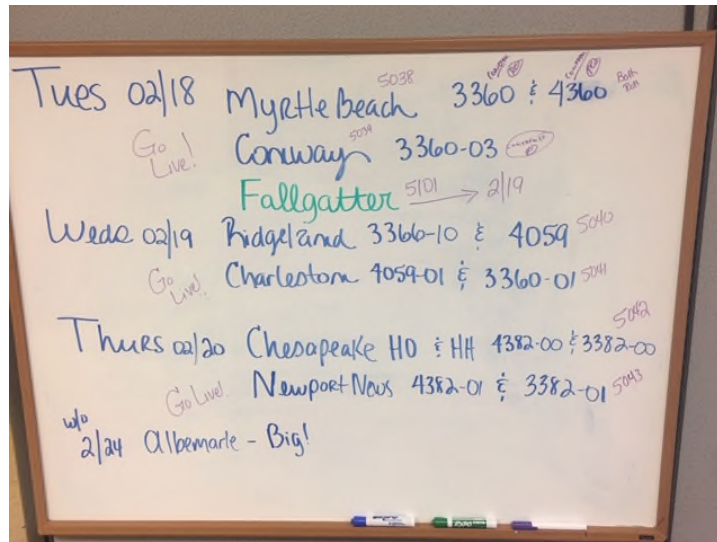 Tues 02/18 Myrtle Beach 5038 3360 & 4360 Both
Go Live! Conway 5039 3360-03
Fallgatter 5101 → 2/19
Weds 02/19 Ridgeland 3366-10 & 4059 5040
Go Live! Charleston 4059-01 & 3360-01 5041
Thurs 02/20 Chesapeake HO & HH 4382-00 & 3382-00 5042
Go Live! Newport News 4382-01 & 3382-01 5043
w/o 2/24 Albemarle - Big!
EXPO